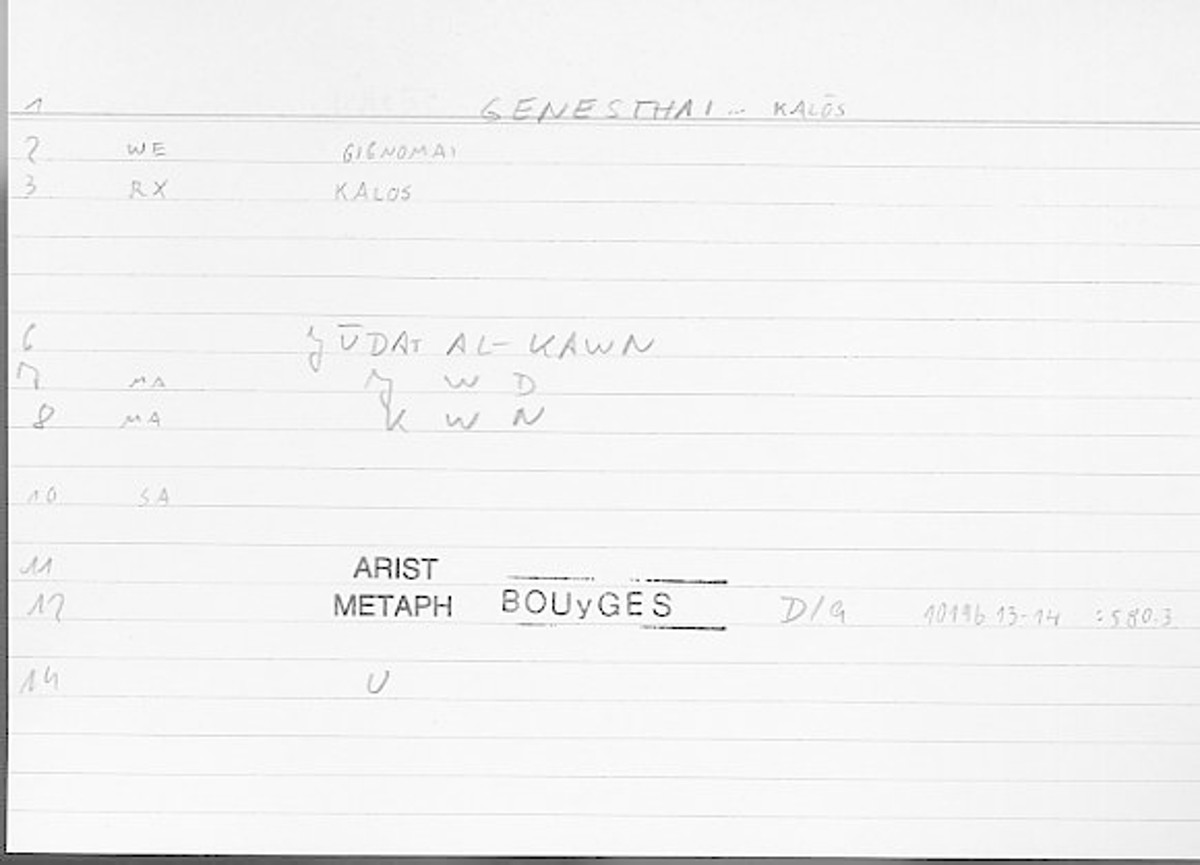 1 GENESTHAI... KALŌS
2 WE GIGNOMAI
3 RX KALOS
6 JŪDAT AL-KAWN
7 MA J W D
8 MA K W N
10 SA
11 ARIST
12 METAPH BOUyGES D/G 1019b 13-14 :580.3
14 U